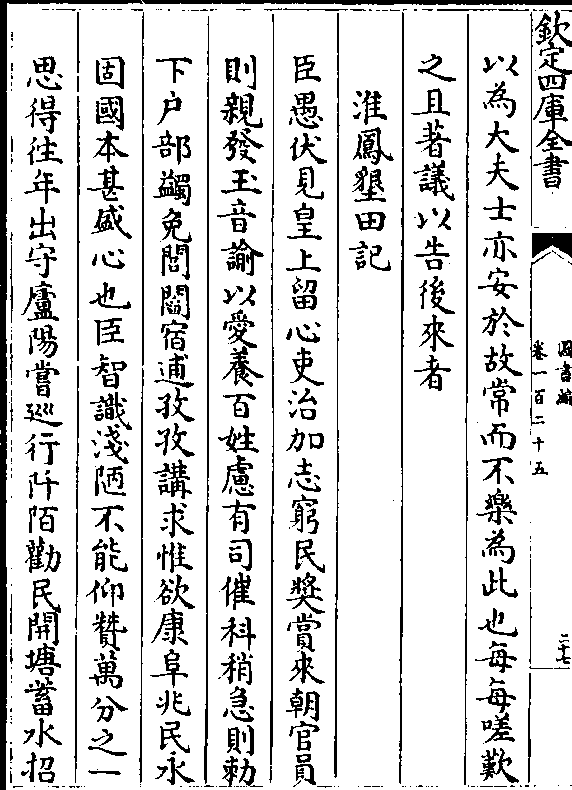 欽定四庫全書
圖書編
卷一百二十五
二十七
以為大夫士亦安於故常而不樂為此也每每嗟歎
之且著議以告後來者
淮鳳墾田記
臣愚伏見皇上留心吏治加志窮民奬賞來朝官員
則親發玉音諭以愛養百姓慮有司催科稍急則勅
下户部蠲免閭閻宿逋孜孜講求惟欲康阜兆民永
固國本甚盛心也臣智識淺陋不能仰贊萬分之一
思得徃年出守廬陽嘗巡行阡陌勸民開塘蓄水招